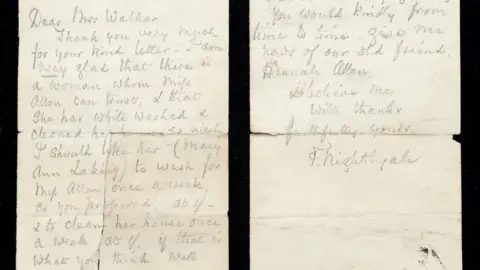 Dear Mrs Walker
Thank you very much
for your kind letter - I am
very glad that there is
a woman whom Miss
Allen can trust, & that
she has white washed &
cleaned her house so nicely
I should like her - (Mary
Ann Laking) to wash for
Miss Allen once a week,
as you proposed, at 1/-
& to clean her house once
a week, at 1/- if that is
what you think well
You would kindly from
time to time give me
news of our old friend,
Hannah Allen.
Believe me
with thanks
faithfully yours
F. Nightingale